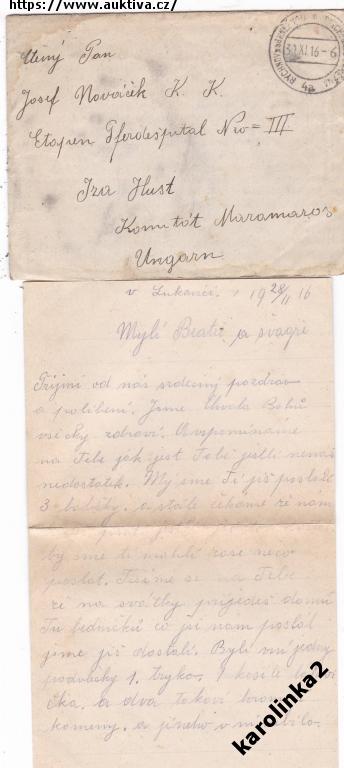 https://www.auktiva.cz/
Ctěný Pan
Josef Nováček K. K.
Etapen Pferdespital Nro = III
Iza Hust
Komitát Maramaros
Ungarn
30.XI.16-6
4a
v Lukavici, 19 28/11 16
Mylí Bratře a švagře
Přijmi od nás srdečný pozdrav
a políbení. Jsme Chvála Bohu
všicky zdraví. Uvspomínáme
na Tebe jak jest Tobě jestli nemáš
nedostatek. My jsme Ti již poslali
3 balíky, a stále čekáme že nám
by sme ti mohli zase neco
poslat. Těšíme se na Tebe
že na svátky přijedeš domů
Tu bedničků co jsi nam poslal
jsme již dostali. Byli mi jedny
podvlečky 1. tryko. 1 košile
a dva takoví
komeny, a jineho v ni nebilo.
karolinka2